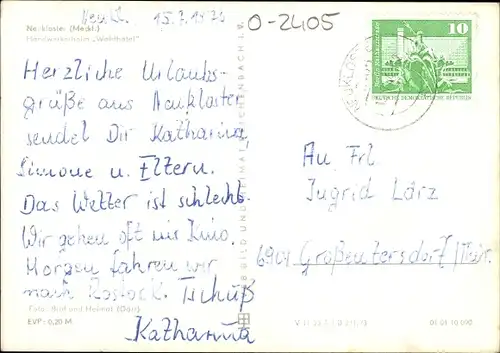 Neukl. 15.7.1980
O-2405
Neukloster (Meckl.)
10
DEUTSCHE DEMOKRATISCHE REPUBLIK
Herzliche Urlaubs-
grüße aus Neukloster
sendet Dir Katharina
Simone u. Eltern.
Das Wetter ist schlecht.
Wir gehen oft ins Kino.
Morgen fahren wir
nach Rostock. Tschüß
Katharina
An Frl.
Ingrid Lärz
6901 Großeutersdorf/Thür.
BILD UND HEIMAT REICHENBACH I. V.
Foto: Bild und Heimat (Darr)
EVP: 0,20 M